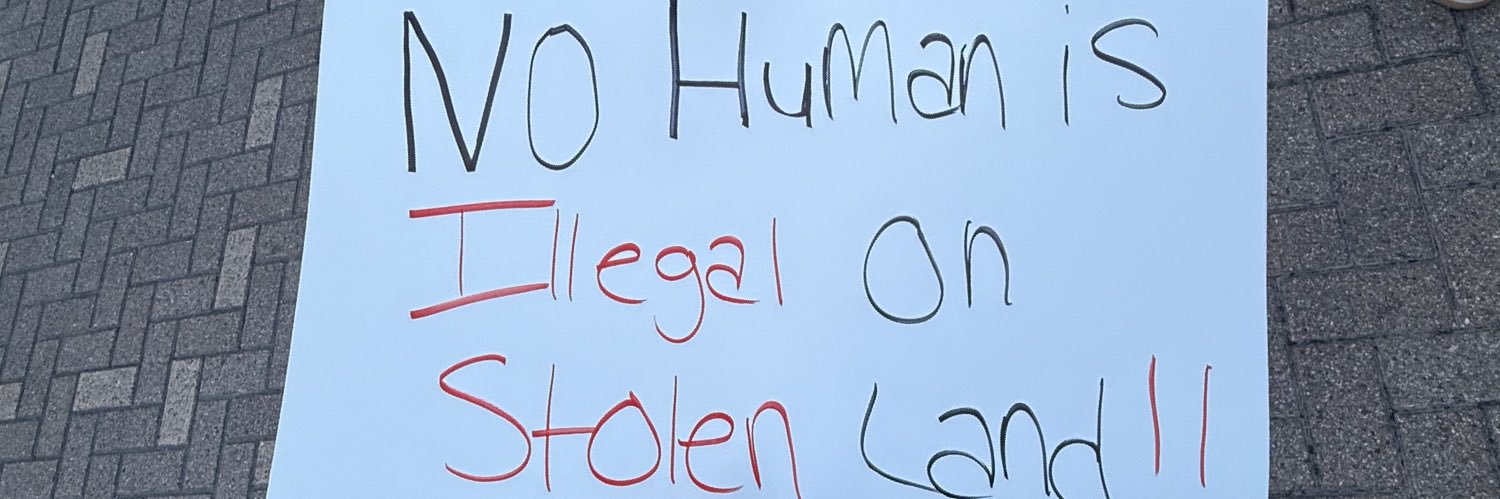 NO Human is
Illegal On
Stolen Land!!